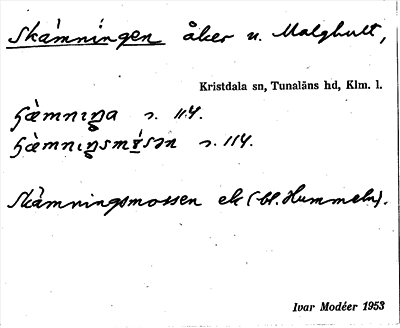 Skämningen åker u. Malghult,
Kristdala sn, Tunaläns hd, Klm. l.
s. 114.
s. 114.
Skämningsmossen ek (bl. Hummeln).
Ivar Modéer 1953